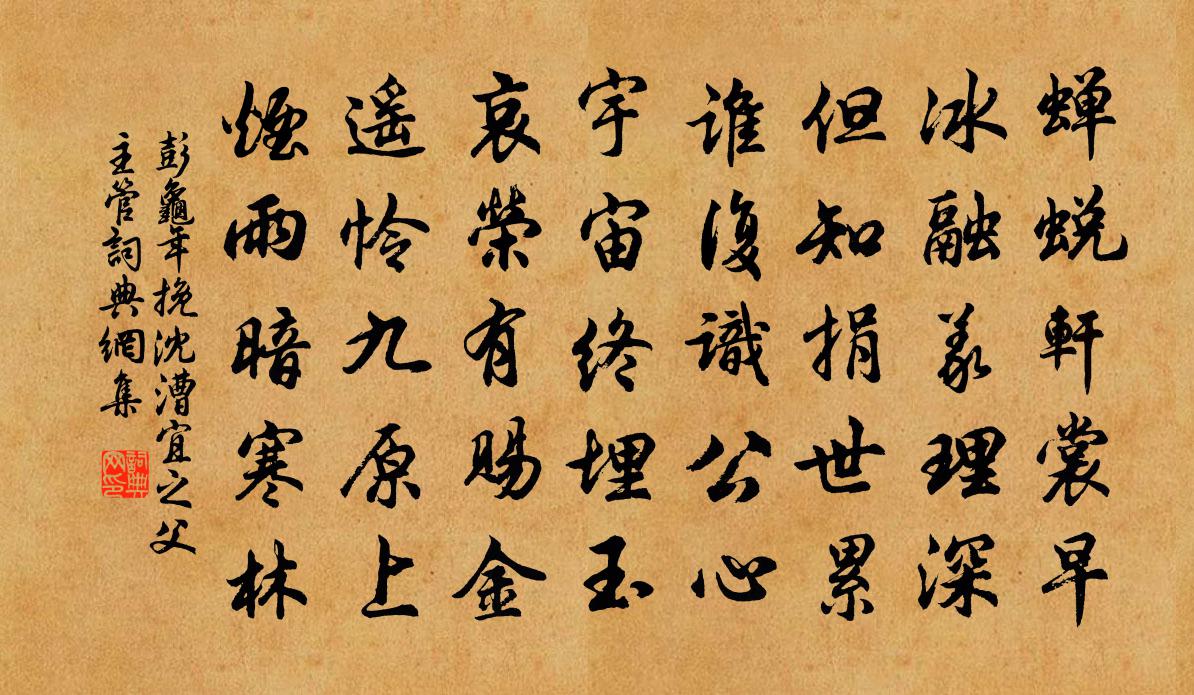 蝉蜕軒裳早
冰融義理深
但知捐世累
誰復識公心
宇宙終埋玉
哀榮有賜金
遥怜九原上
煙雨暗寒林
彭龜年挽沈漕宜之父
主管詞典網集
詞典网印